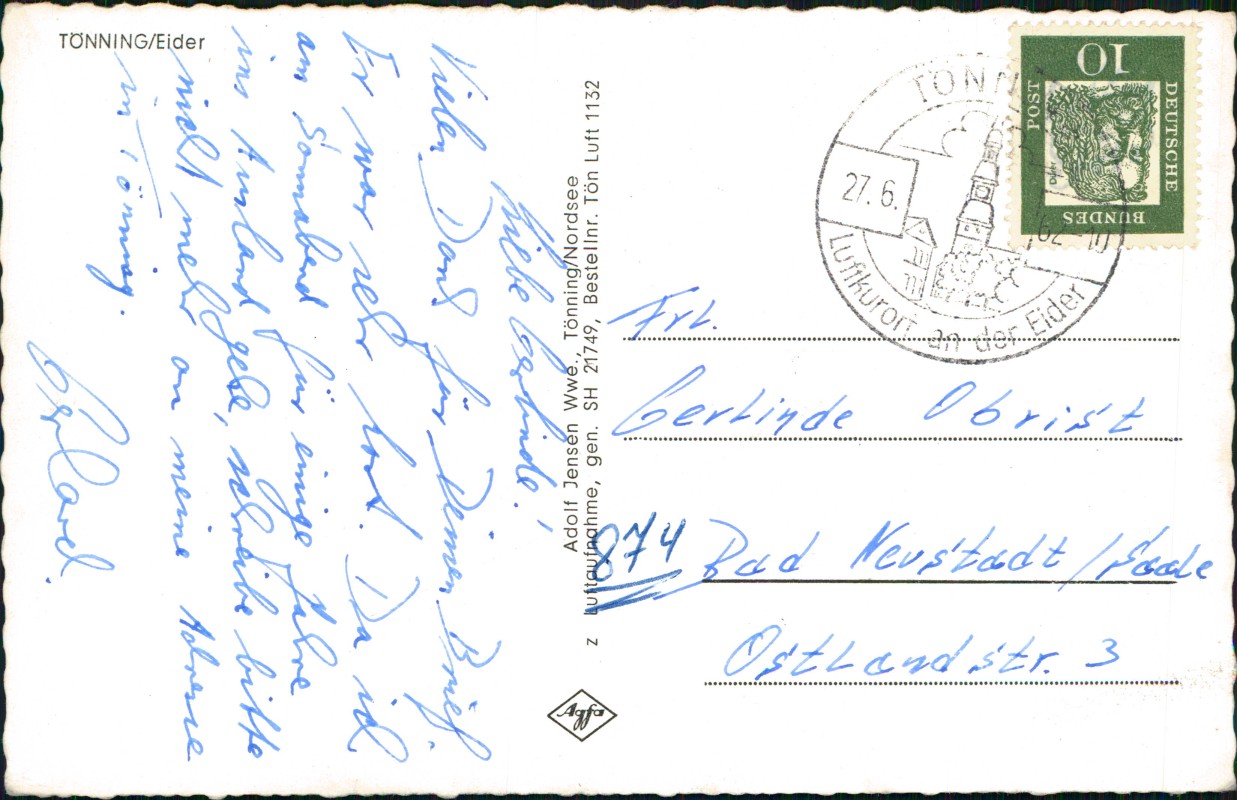 TÖNNING/Eider
Liebe Gerlinde!
Vielen Dank für Deinen Brief.
Er war sehr lieb. Da ich
am Sonnabend für einige Jahre
ins Ausland gehe, schreibe bitte
nicht mehr an meine Adresse
in Tönning.
Adolf Jensen Wwe., Tönning/Nordsee
z Luftaufnahme, gen. SH 21749, Bestellnr. Tön Luft 1132
Agfa
TÖNN
27.6.
62-10
Luftkurort an der Eider
10
DEUTSCHE
BUNDES
POST
Dürer
Frl.
Gerlinde Obrist
874 Bad Neustadt/Saale
Ostlandstr. 3